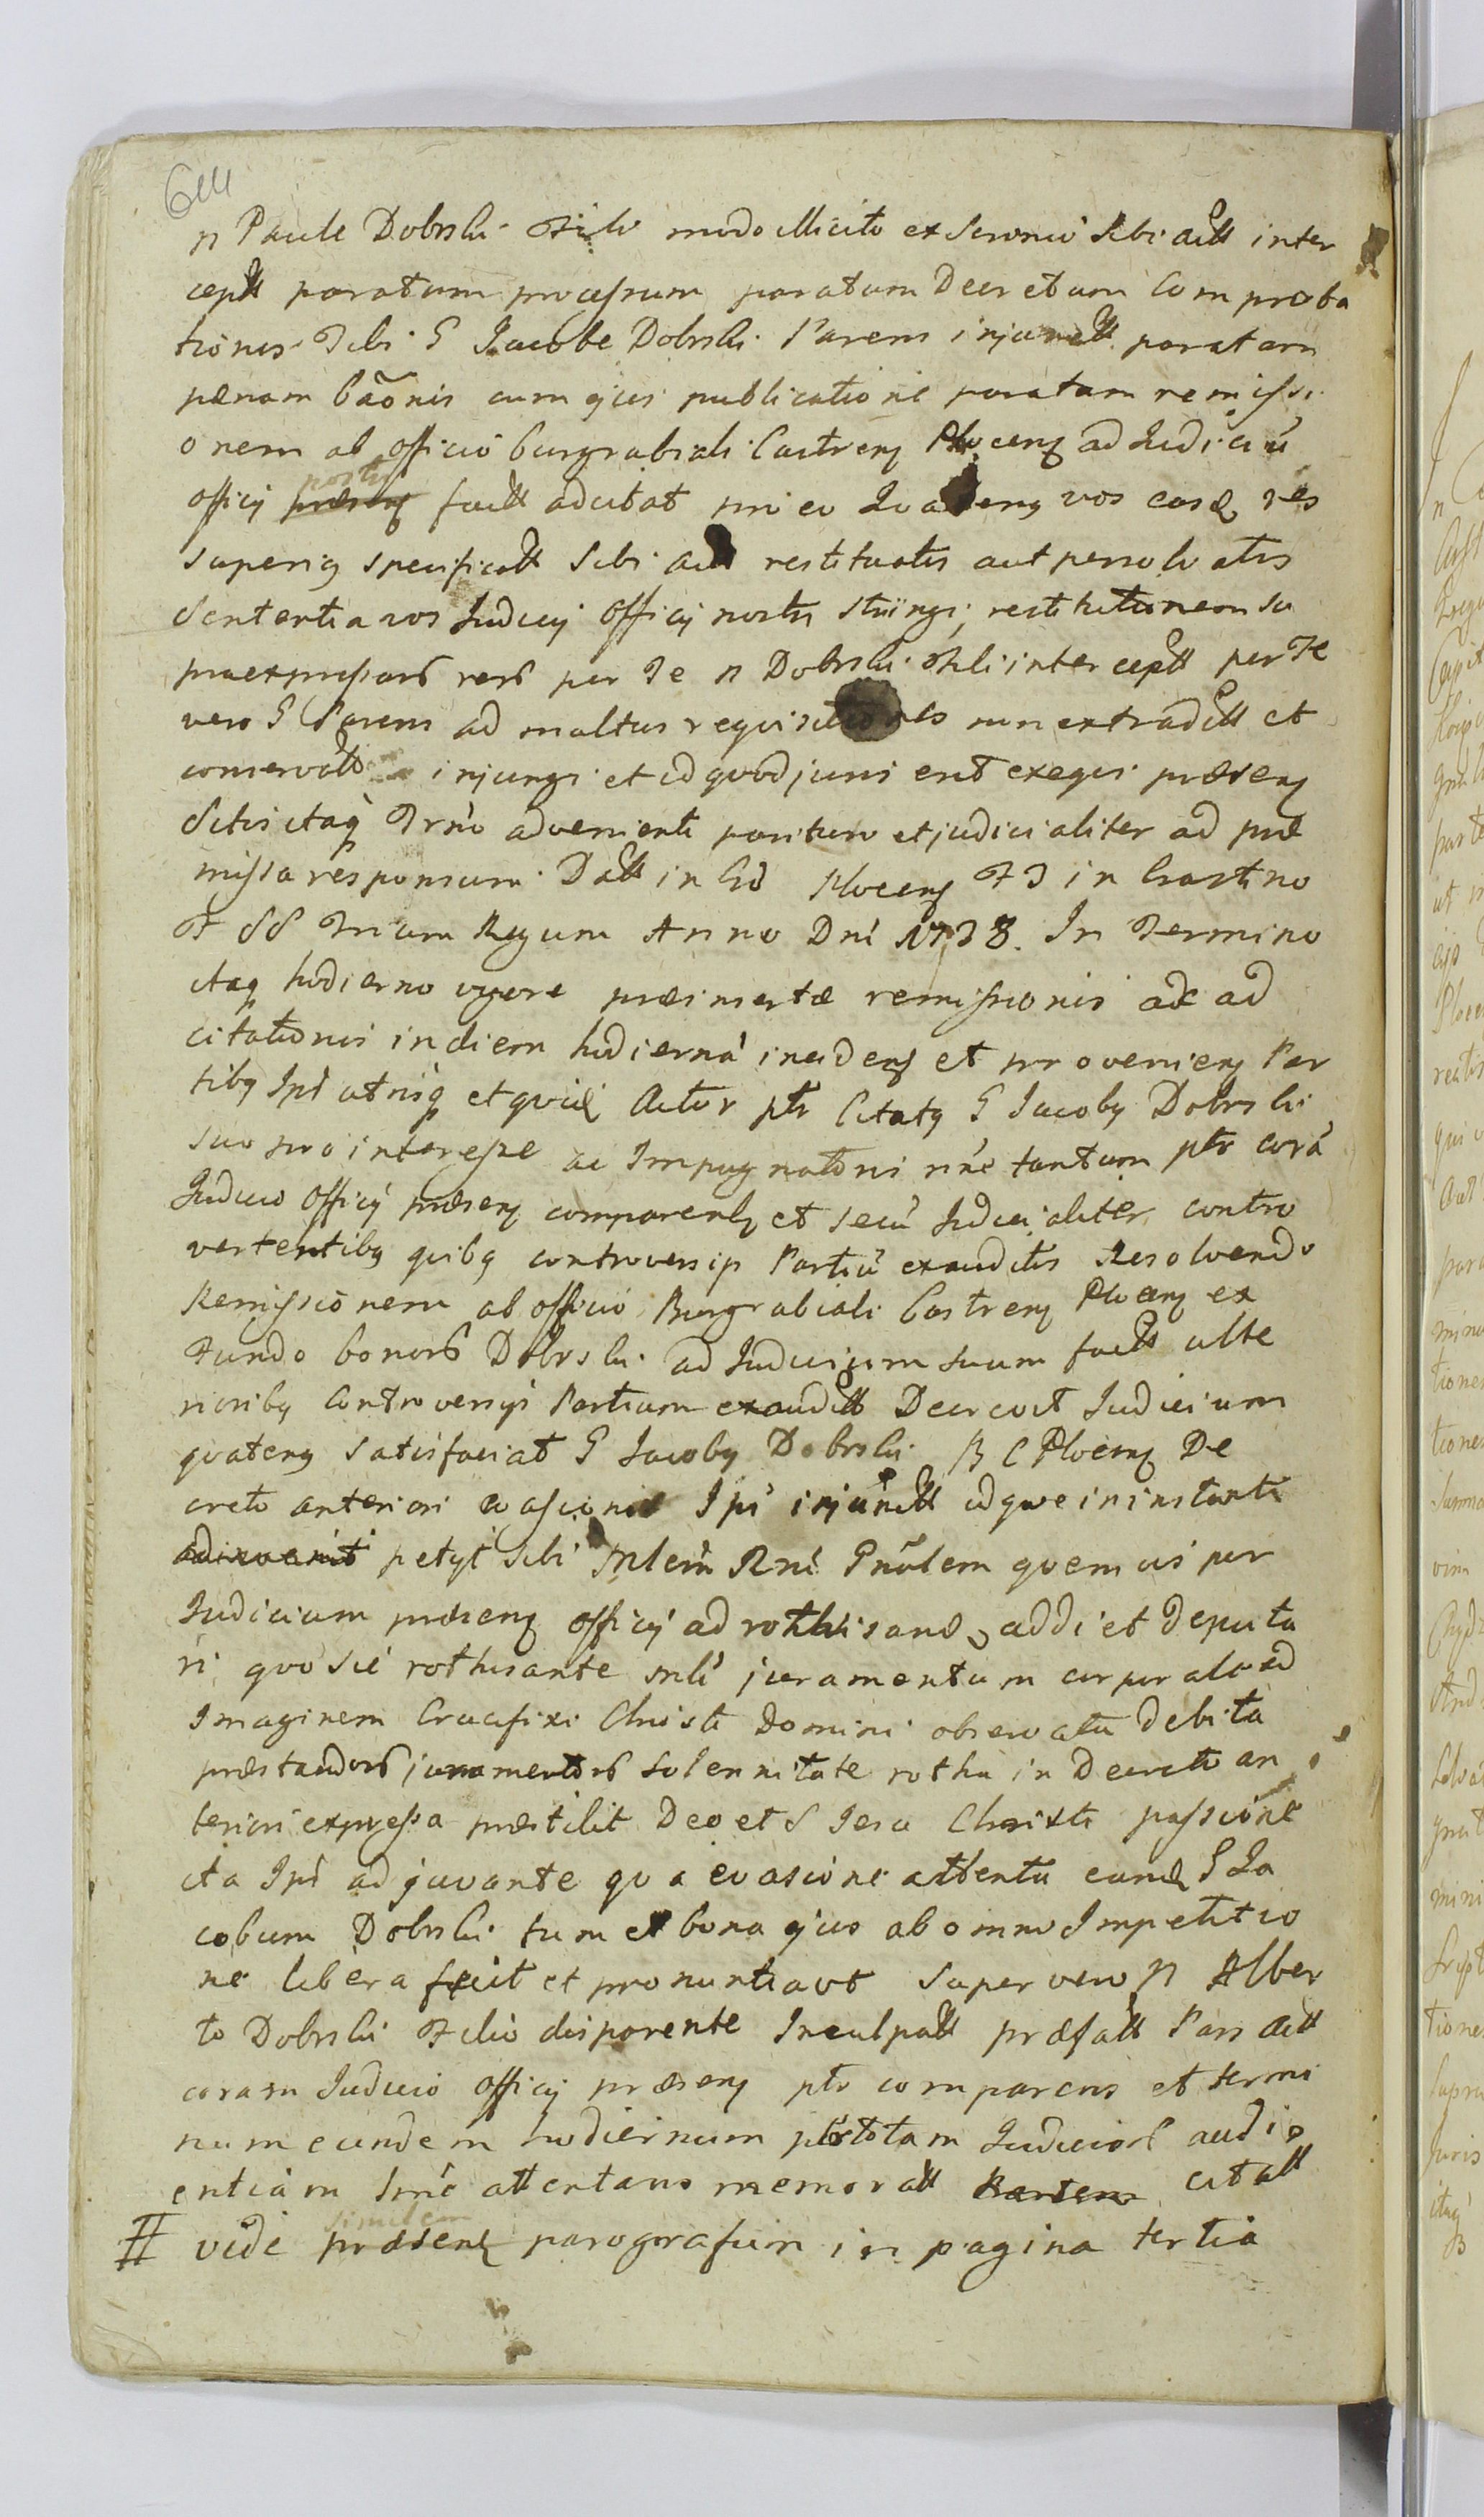 644
N Paule Dobrski Fili modo illicito ex scrinio Sibi actt inter
ceptt paratum processum paratum Decretum Comproba
tionis Tibi G Jacobe Dobrski Parens injunctt paratam
pænam baõnis cum ejus publicatione paratam remissi
onem ab officio burgrabiali Castreñ Plocenę ad Judiciú
officij præsenę postri factt adcitat pro eo Quatenę vos easdę res
superię specificatt Sibi act restituatis aut persolvatis
Sententia vos Judicij Officij nostri stringi, restitutionem su
praexpressarѣ rerѣ per Te N Dobrski Fili interceptt per Te
vero G Parens ad multas requisitiones non extraditt et
conservatt injungi et id quod juris erit exequi præsenę
Sitis itaq Trño advenienti pariturõ et judicialiter ad præ
missa responsuri Datt in Crõ Plocenę F 3 in Crastino
F SS Trium Regum Anno Dni 1738. In Termino
itaq hodierno vigore præinsertæ remissionis ac ad
citationis in diem hodierná incidenę et provenienę Par
tibę Ipś utrisq et quidę Actor ptr Citatę G Jacobę Dobrski
suo pro interesse ac Impugnatõni nñc tantum ptr corá
Judicio Officij præsenę comparentę et secú Judicialiter contro
vertentibę quibę controversijs Partiú exauditis Resolvendo
Remissionem ab officio Burgrabiali Castrenę Plocenę ex
Fundo bonorѣ Dobrski ad Judicium suum factt ulte
rioribę Controversijs Partium exauditt Decrevit Judicium
quatenę satisfaciat G Jacobę Dobrski B C Plocenę De
creto anteriori evasionis Ipś injunctt idque in instanti
adinvenit petyt sibi Mlem Rnś Gnalem quem eis per
Judicium præsenę officij ad rothisandę addi et deputa
ri quo sic rothisante mlś juramentum corporale ad
Imaginem Crucifixi Christi Domini observata debita
præstandorѣ juramentorѣ solennitate rotha in Decreto an
teriori expressa præstitit Deo et S Jesu Christi passione
ita Ipś adjuvante qua evasione attenta eundę G Ja
cobum Dobrski tum et bona ejus ab omni Impetitio
ne libera fecit et pronuntiavit super vero N Alber
to Dobrski Filio disparente Inculpatt præfatt Pars Actt
coram Judicio Officij præsenę ptr comparens et termi
num eundem hodiernum ptr totam Judiciorѣ audi
entiam Smć attentans memoratt Parten citatt
# vide præsenę similem paragrafum in pagina tertia